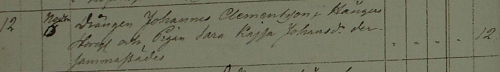 12 Drängen Johannes Clementson i Hanger
och Pigan Sara Kajsa Johansdr der-
sammastädes 12